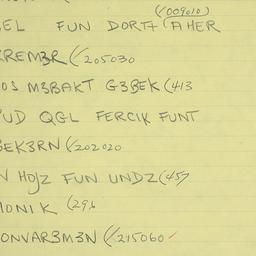 (/009010)
EL FUN DORTT (A HER
KREM3R (/205030
OS M3BAKT G3BEK (413
UD QGL FERCIK FUNT
BEK3RN (/202020
N HOJZ FUN UNDZ (457
MONIK (29,6
ONVAR3M3N (/215060